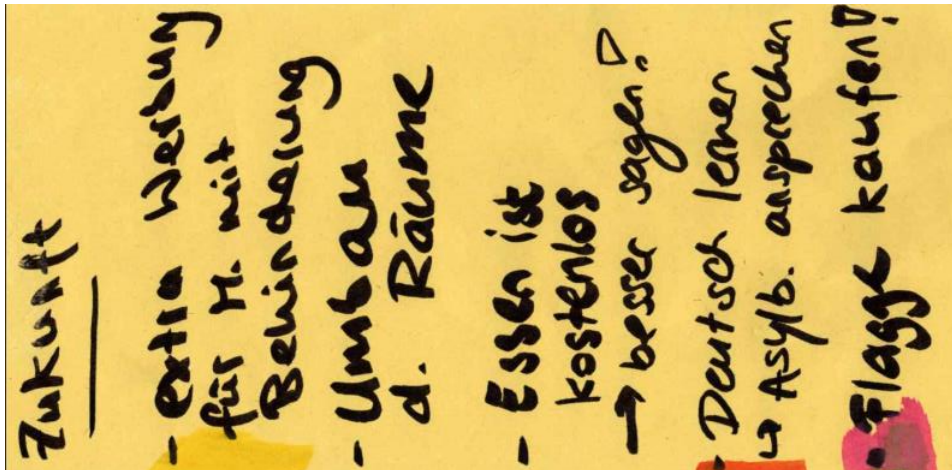 Zukunft
- extra Werbung
für M. mit
Behinderung
- Umbau
d. Räume
- Essen ist
kostenlos
→ besser sagen!
- Deutsch lernen
↳ Asylb. ansprechen
- Flagge kaufen!